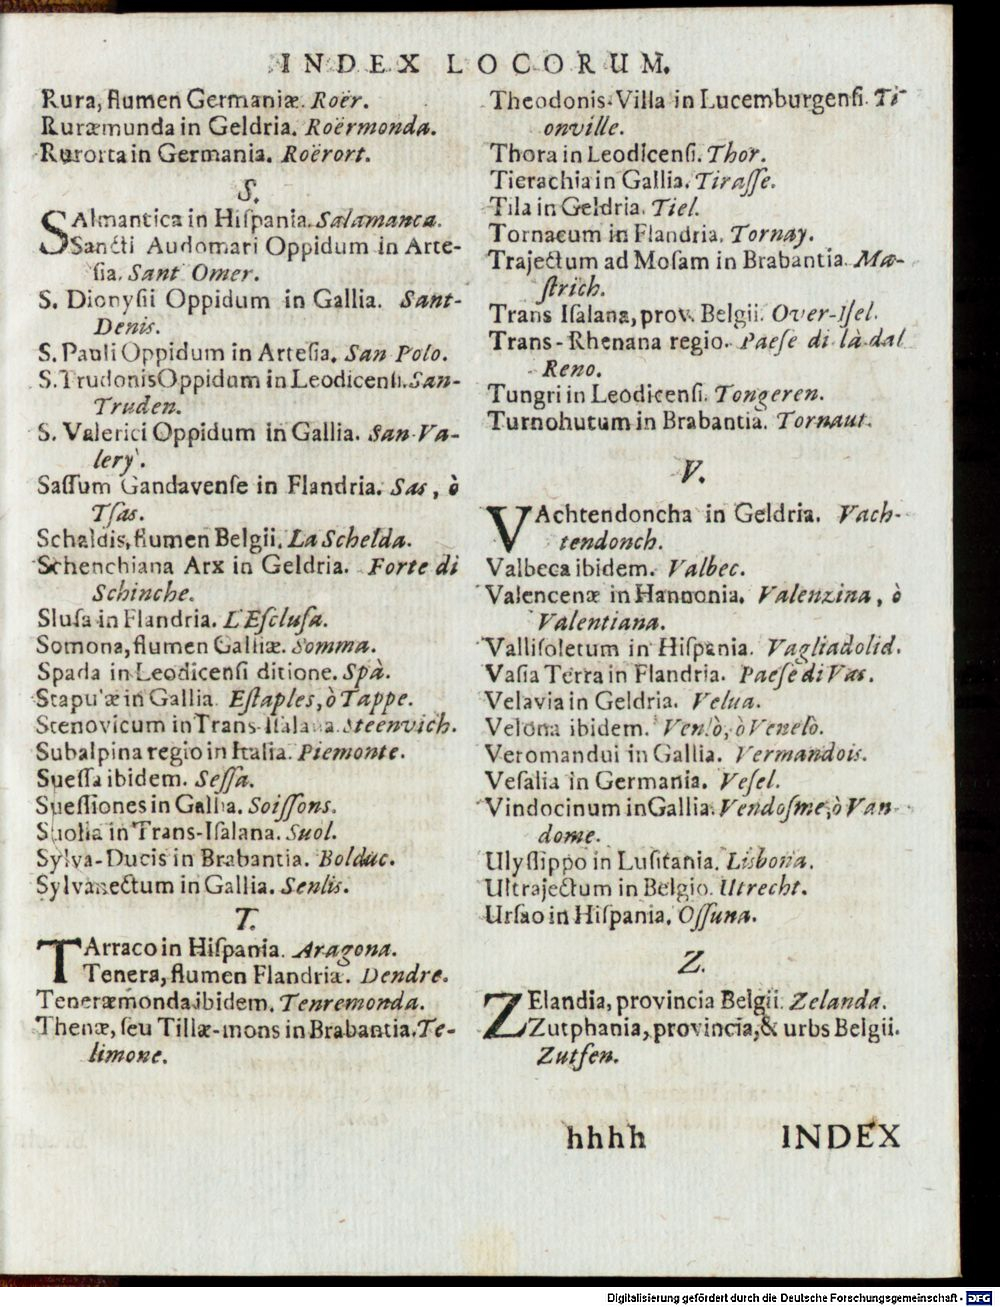 INDEX LOCORUM.
Rura, flumen Germaniæ. Roër.
Ruræmunda in Geldria. Roërmonda.
Rurorta in Germania. Roërort.
S.
SAlmantica in Hiſpania. Salamanca.
Sancti Audomari Oppidum in Arte-
ſia. Sant Omer.
S. Dionyſii Oppidum in Gallia. Sant-
Denis.
S. Pauli Oppidum in Arteſia. San Polo.
S. Trudonis Oppidum in Leodicenſi. San-
Truden.
S. Valerici Oppidum in Gallia. San Va-
lery.
Saſſum Gandavenſe in Flandria. Sas, ò
Tſas.
Schaldis, flumen Belgii. La Schelda.
Schenchiana Arx in Geldria. Forte di
Schinche.
Sluſa in Flandria. L'Eſcluſa.
Somona, flumen Galliæ. Somma.
Spada in Leodicenſi ditione. Spà.
Stapulæ in Gallia. Eſtaples, ò Tappe.
Stenovicum in Trans-Iſalana. Steenvich.
Subalpina regio in Italia. Piemonte.
Sueſſa ibidem. Seſſa.
Sueſſiones in Gallia. Soiſſons.
Suolla in Trans-Iſalana. Suol.
Sylva-Ducis in Brabantia. Bolduc.
Sylvanectum in Gallia. Senlis.
T.
TArraco in Hiſpania. Aragona.
Tenera, flumen Flandriæ. Dendre.
Teneræmonda ibidem. Tenremonda.
Thenæ, ſeu Tillæ-mons in Brabantia. Te-
limone.
Theodonis-Villa in Lucemburgenſi. Ti-
onville.
Thora in Leodicenſi. Thor.
Tierachia in Gallia. Tiraſſe.
Tila in Geldria. Tiel.
Tornacum in Flandria. Tornay.
Trajectum ad Moſam in Brabantia. Ma-
ſtrich.
Trans Iſalana, prov. Belgii. Over-Iſel.
Trans-Rhenana regio. Paeſe di là dal
Reno.
Tungri in Leodicenſi. Tongeren.
Turnohutum in Brabantia. Tornaut.
V.
VAchtendoncha in Geldria. Vach-
tendonch.
Valbeca ibidem. Valbec.
Valencenæ in Hannonia. Valenzina, ò
Valentiana.
Valliſoletum in Hiſpania. Vagliadolid.
Vaſia Terra in Flandria. Paeſe di Vas.
Velavia in Geldria. Velua.
Velona ibidem. Venlò, ò Venelò.
Veromandui in Gallia. Vermandois.
Veſalia in Germania. Veſel.
Vindocinum in Gallia. Vendoſme, ò Van
dome.
Ulyſſippo in Luſitania. Lisbona.
Ultrajectum in Belgio. Utrecht.
Urſao in Hiſpania. Oſſuna.
Z.
ZElandia, provincia Belgii. Zelanda.
Zutphania, provincia, & urbs Belgii.
Zutfen.
hhhh INDEX
Digitalisierung gefördert durch die Deutsche Forschungsgemeinschaft - DFG